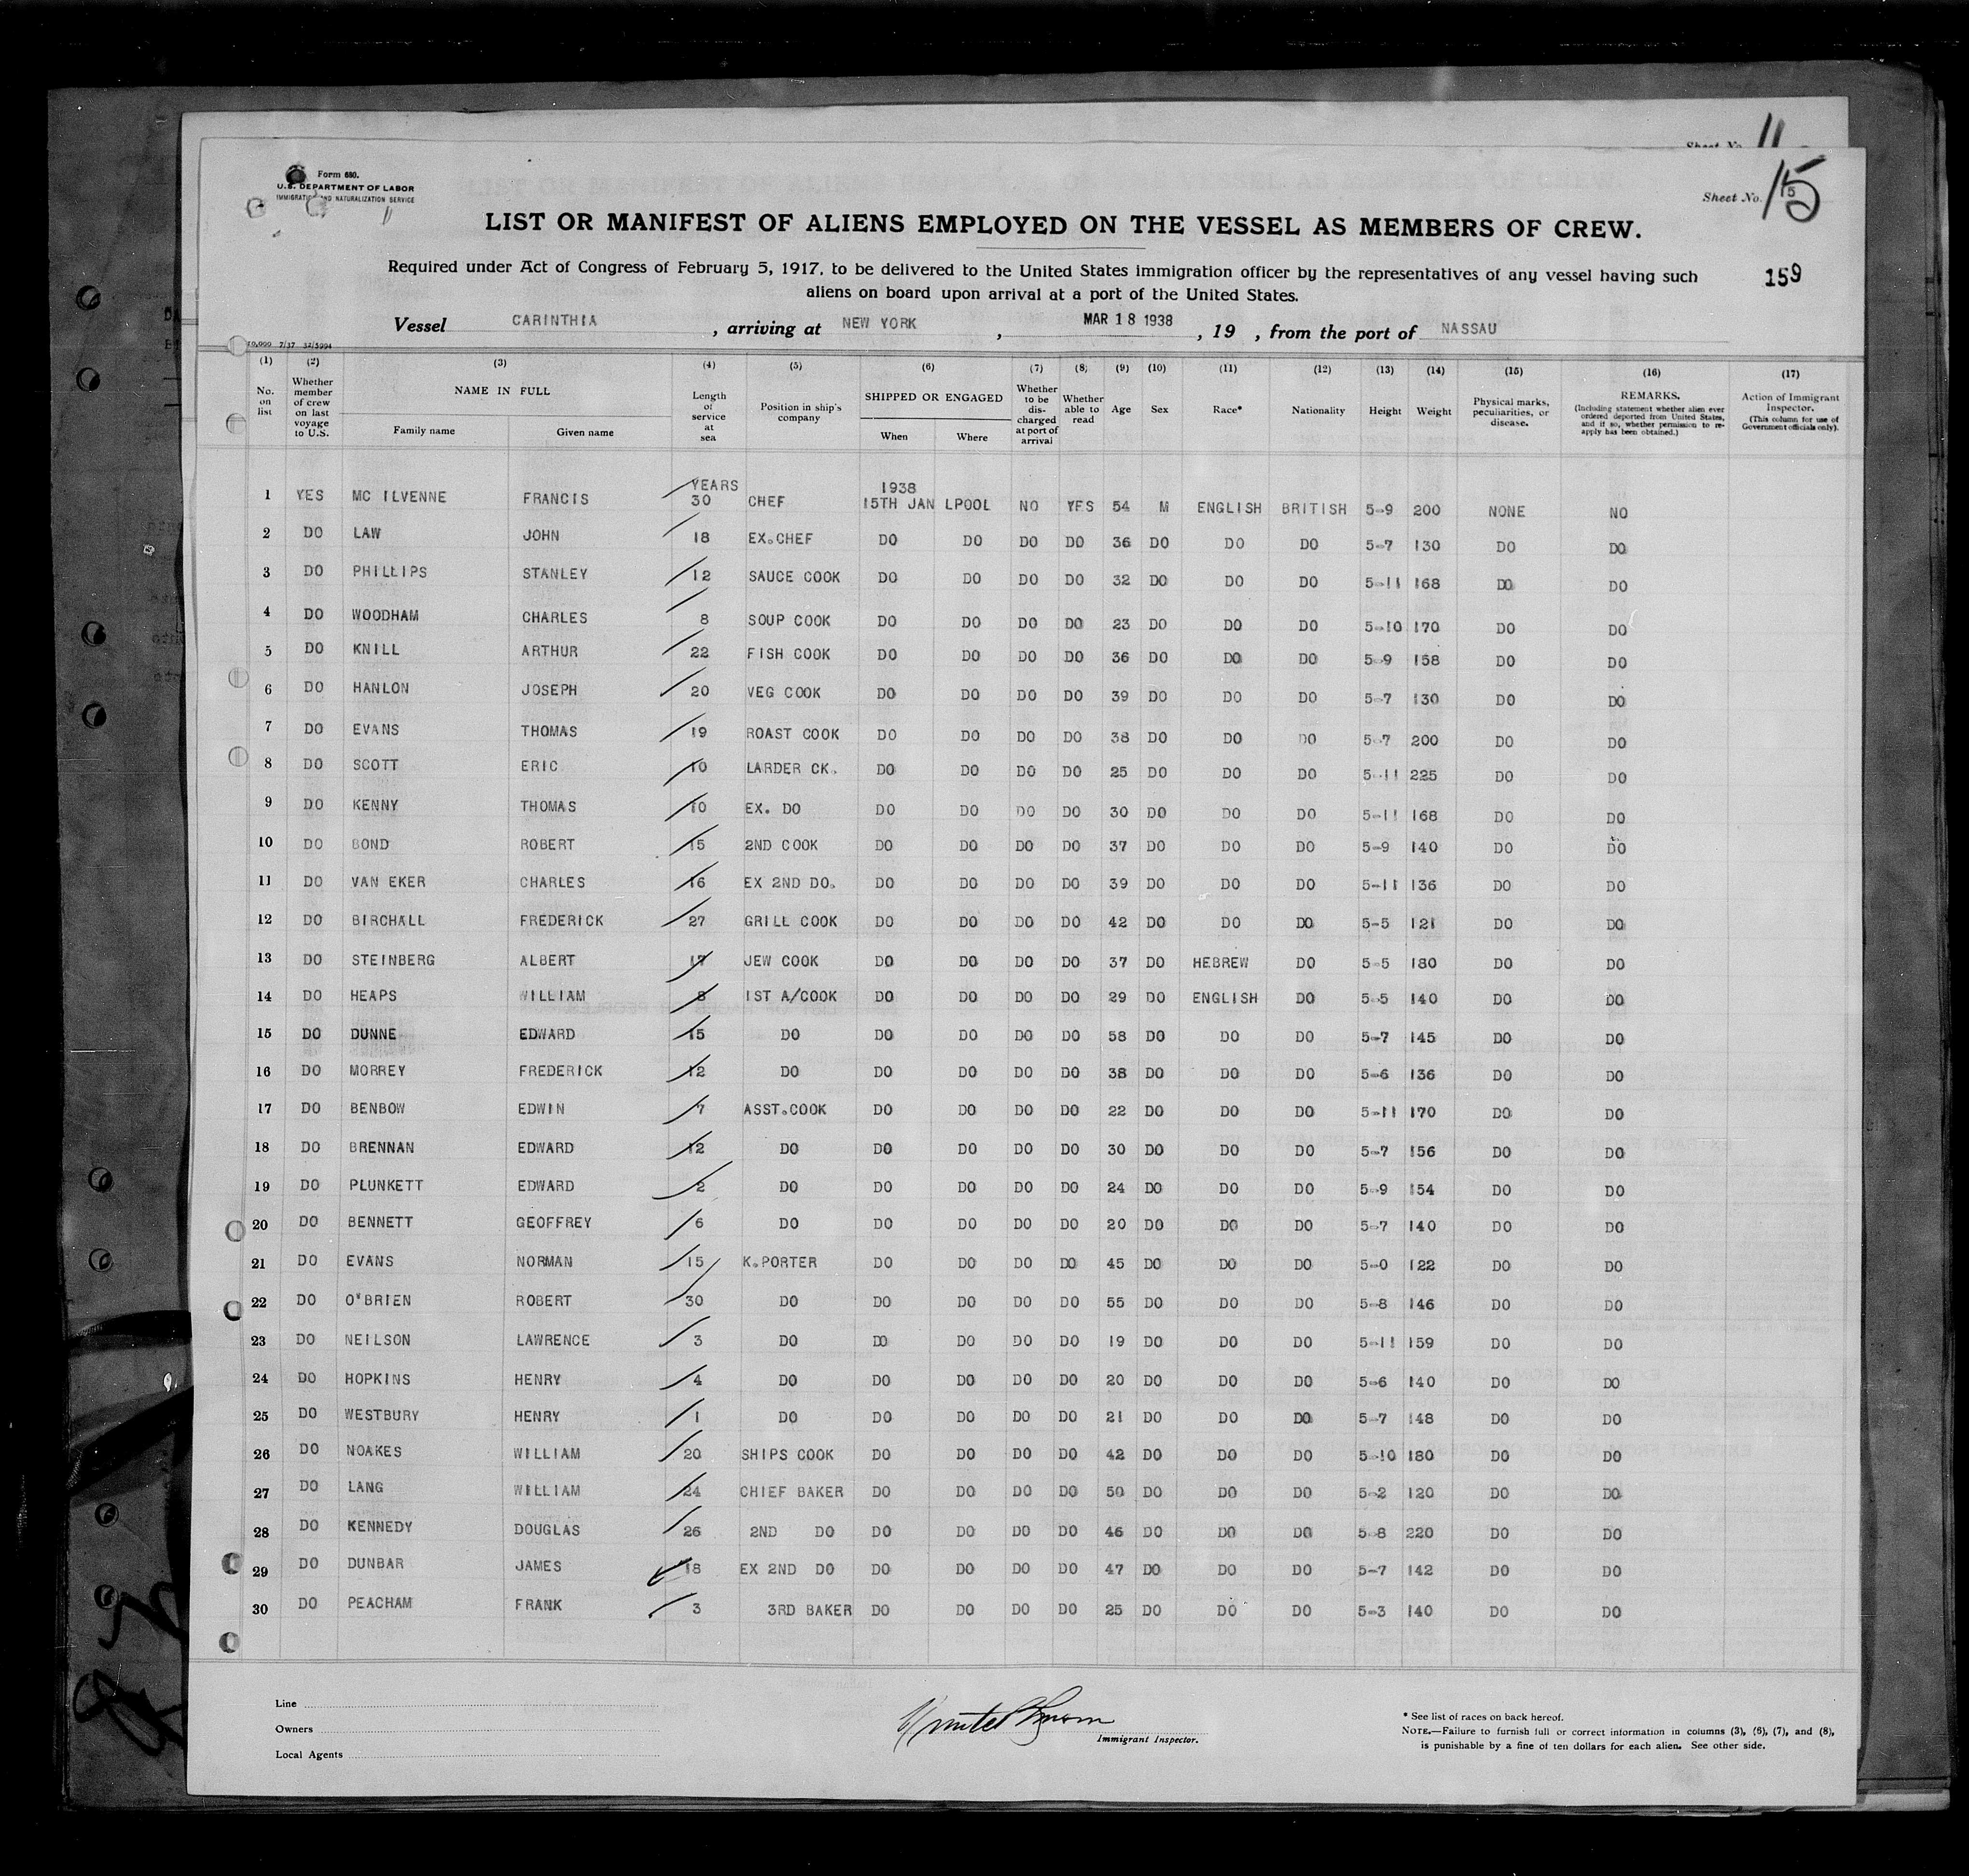 Sheet No. 11
Form 680.
U.S. DEPARTMENT OF LABOR
IMMIGRATION AND NATURALIZATION SERVICE
Sheet No. 15
5
LIST OR MANIFEST OF ALIENS EMPLOYED ON THE VESSEL AS MEMBERS OF CREW.
Required under Act of Congress of February 5, 1917, to be delivered to the United States immigration officer by the representatives of any vessel having such
aliens on board upon arrival at a port of the United States.
159
Vessel CARINTHIA , arriving at NEW YORK , MAR 18 1938 , 19 , from the port of NASSAU
(1) (2) (3) (4) (5) (6) (7) (8) (9) (10) (11) (12) (13) (14) (15) (16) (17)
No. on list
Whether member of crew on last voyage to U.S.
NAME IN FULL
Family name Given name
Length of service at sea
Position in ship's company
SHIPPED OR ENGAGED
When Where
Whether to be discharged at port of arrival
Whether able to read
Age Sex Race* Nationality Height Weight
Physical marks, peculiarities, or disease.
REMARKS.
(Including statement whether alien ever ordered deported from United States, and if so, whether permission to reapply has been obtained.)
Action of Immigrant Inspector.
(This column for use of Government officials only).
YEARS 1938
1 YES MC ILVENNE FRANCIS 30 CHEF 15TH JAN LPOOL NO YES 54 M ENGLISH BRITISH 5-9 200 NONE NO
2 DO LAW JOHN 18 EX.CHEF DO DO DO DO 36 DO DO DO 5-7 130 DO DO
3 DO PHILLIPS STANLEY 12 SAUCE COOK DO DO DO DO 32 DO DO DO 5-11 168 DO DO
4 DO WOODHAM CHARLES 8 SOUP COOK DO DO DO DO 23 DO DO DO 5-10 170 DO DO
5 DO KNILL ARTHUR 22 FISH COOK DO DO DO DO 36 DO DO DO 5-9 158 DO DO
6 DO HANLON JOSEPH 20 VEG COOK DO DO DO DO 39 DO DO DO 5-7 130 DO DO
7 DO EVANS THOMAS 19 ROAST COOK DO DO DO DO 38 DO DO DO 5-7 200 DO DO
8 DO SCOTT ERIC 10 LARDER CK. DO DO DO DO 25 DO DO DO 5-11 225 DO DO
9 DO KENNY THOMAS 10 EX. DO DO DO DO DO 30 DO DO DO 5-11 168 DO DO
10 DO BOND ROBERT 15 2ND COOK DO DO DO DO 37 DO DO DO 5-9 140 DO DO
11 DO VAN EKER CHARLES 16 EX 2ND DO. DO DO DO DO 39 DO DO DO 5-11 136 DO DO
12 DO BIRCHALL FREDERICK 27 GRILL COOK DO DO DO DO 42 DO DO DO 5-5 121 DO DO
13 DO STEINBERG ALBERT 17 JEW COOK DO DO DO DO 37 DO HEBREW DO 5-5 180 DO DO
14 DO HEAPS WILLIAM 8 1ST A/COOK DO DO DO DO 29 DO ENGLISH DO 5-5 140 DO DO
15 DO DUNNE EDWARD 15 DO DO DO DO DO 58 DO DO DO 5-7 145 DO DO
16 DO MORREY FREDERICK 12 DO DO DO DO DO 38 DO DO DO 5-6 136 DO DO
17 DO BENBOW EDWIN 7 ASST.COOK DO DO DO DO 22 DO DO DO 5-11 170 DO DO
18 DO BRENNAN EDWARD 12 DO DO DO DO DO 30 DO DO DO 5-7 156 DO DO
19 DO PLUNKETT EDWARD 2 DO DO DO DO DO 24 DO DO DO 5-9 154 DO DO
20 DO BENNETT GEOFFREY 6 DO DO DO DO DO 20 DO DO DO 5-7 140 DO DO
21 DO EVANS NORMAN 15 K.PORTER DO DO DO DO 45 DO DO DO 5-0 122 DO DO
22 DO O'BRIEN ROBERT 30 DO DO DO DO DO 55 DO DO DO 5-8 146 DO DO
23 DO NEILSON LAWRENCE 3 DO DO DO DO DO 19 DO DO DO 5-11 159 DO DO
24 DO HOPKINS HENRY 4 DO DO DO DO DO 20 DO DO DO 5-6 140 DO DO
25 DO WESTBURY HENRY 1 DO DO DO DO DO 21 DO DO DO 5-7 148 DO DO
26 DO NOAKES WILLIAM 20 SHIPS COOK DO DO DO DO 42 DO DO DO 5-10 180 DO DO
27 DO LANG WILLIAM 24 CHIEF BAKER DO DO DO DO 50 DO DO DO 5-2 120 DO DO
28 DO KENNEDY DOUGLAS 26 2ND DO DO DO DO DO 46 DO DO DO 5-8 220 DO DO
29 DO DUNBAR JAMES 18 EX 2ND DO DO DO DO DO 47 DO DO DO 5-7 142 DO DO
30 DO PEACHAM FRANK 3 3RD BAKER DO DO DO DO 25 DO DO DO 5-3 140 DO DO
Line
Owners
Local Agents
Immigrant Inspector.
* See list of races on back hereof.
NOTE.—Failure to furnish full or correct information in columns (3), (6), (7), and (8),
is punishable by a fine of ten dollars for each alien. See other side.